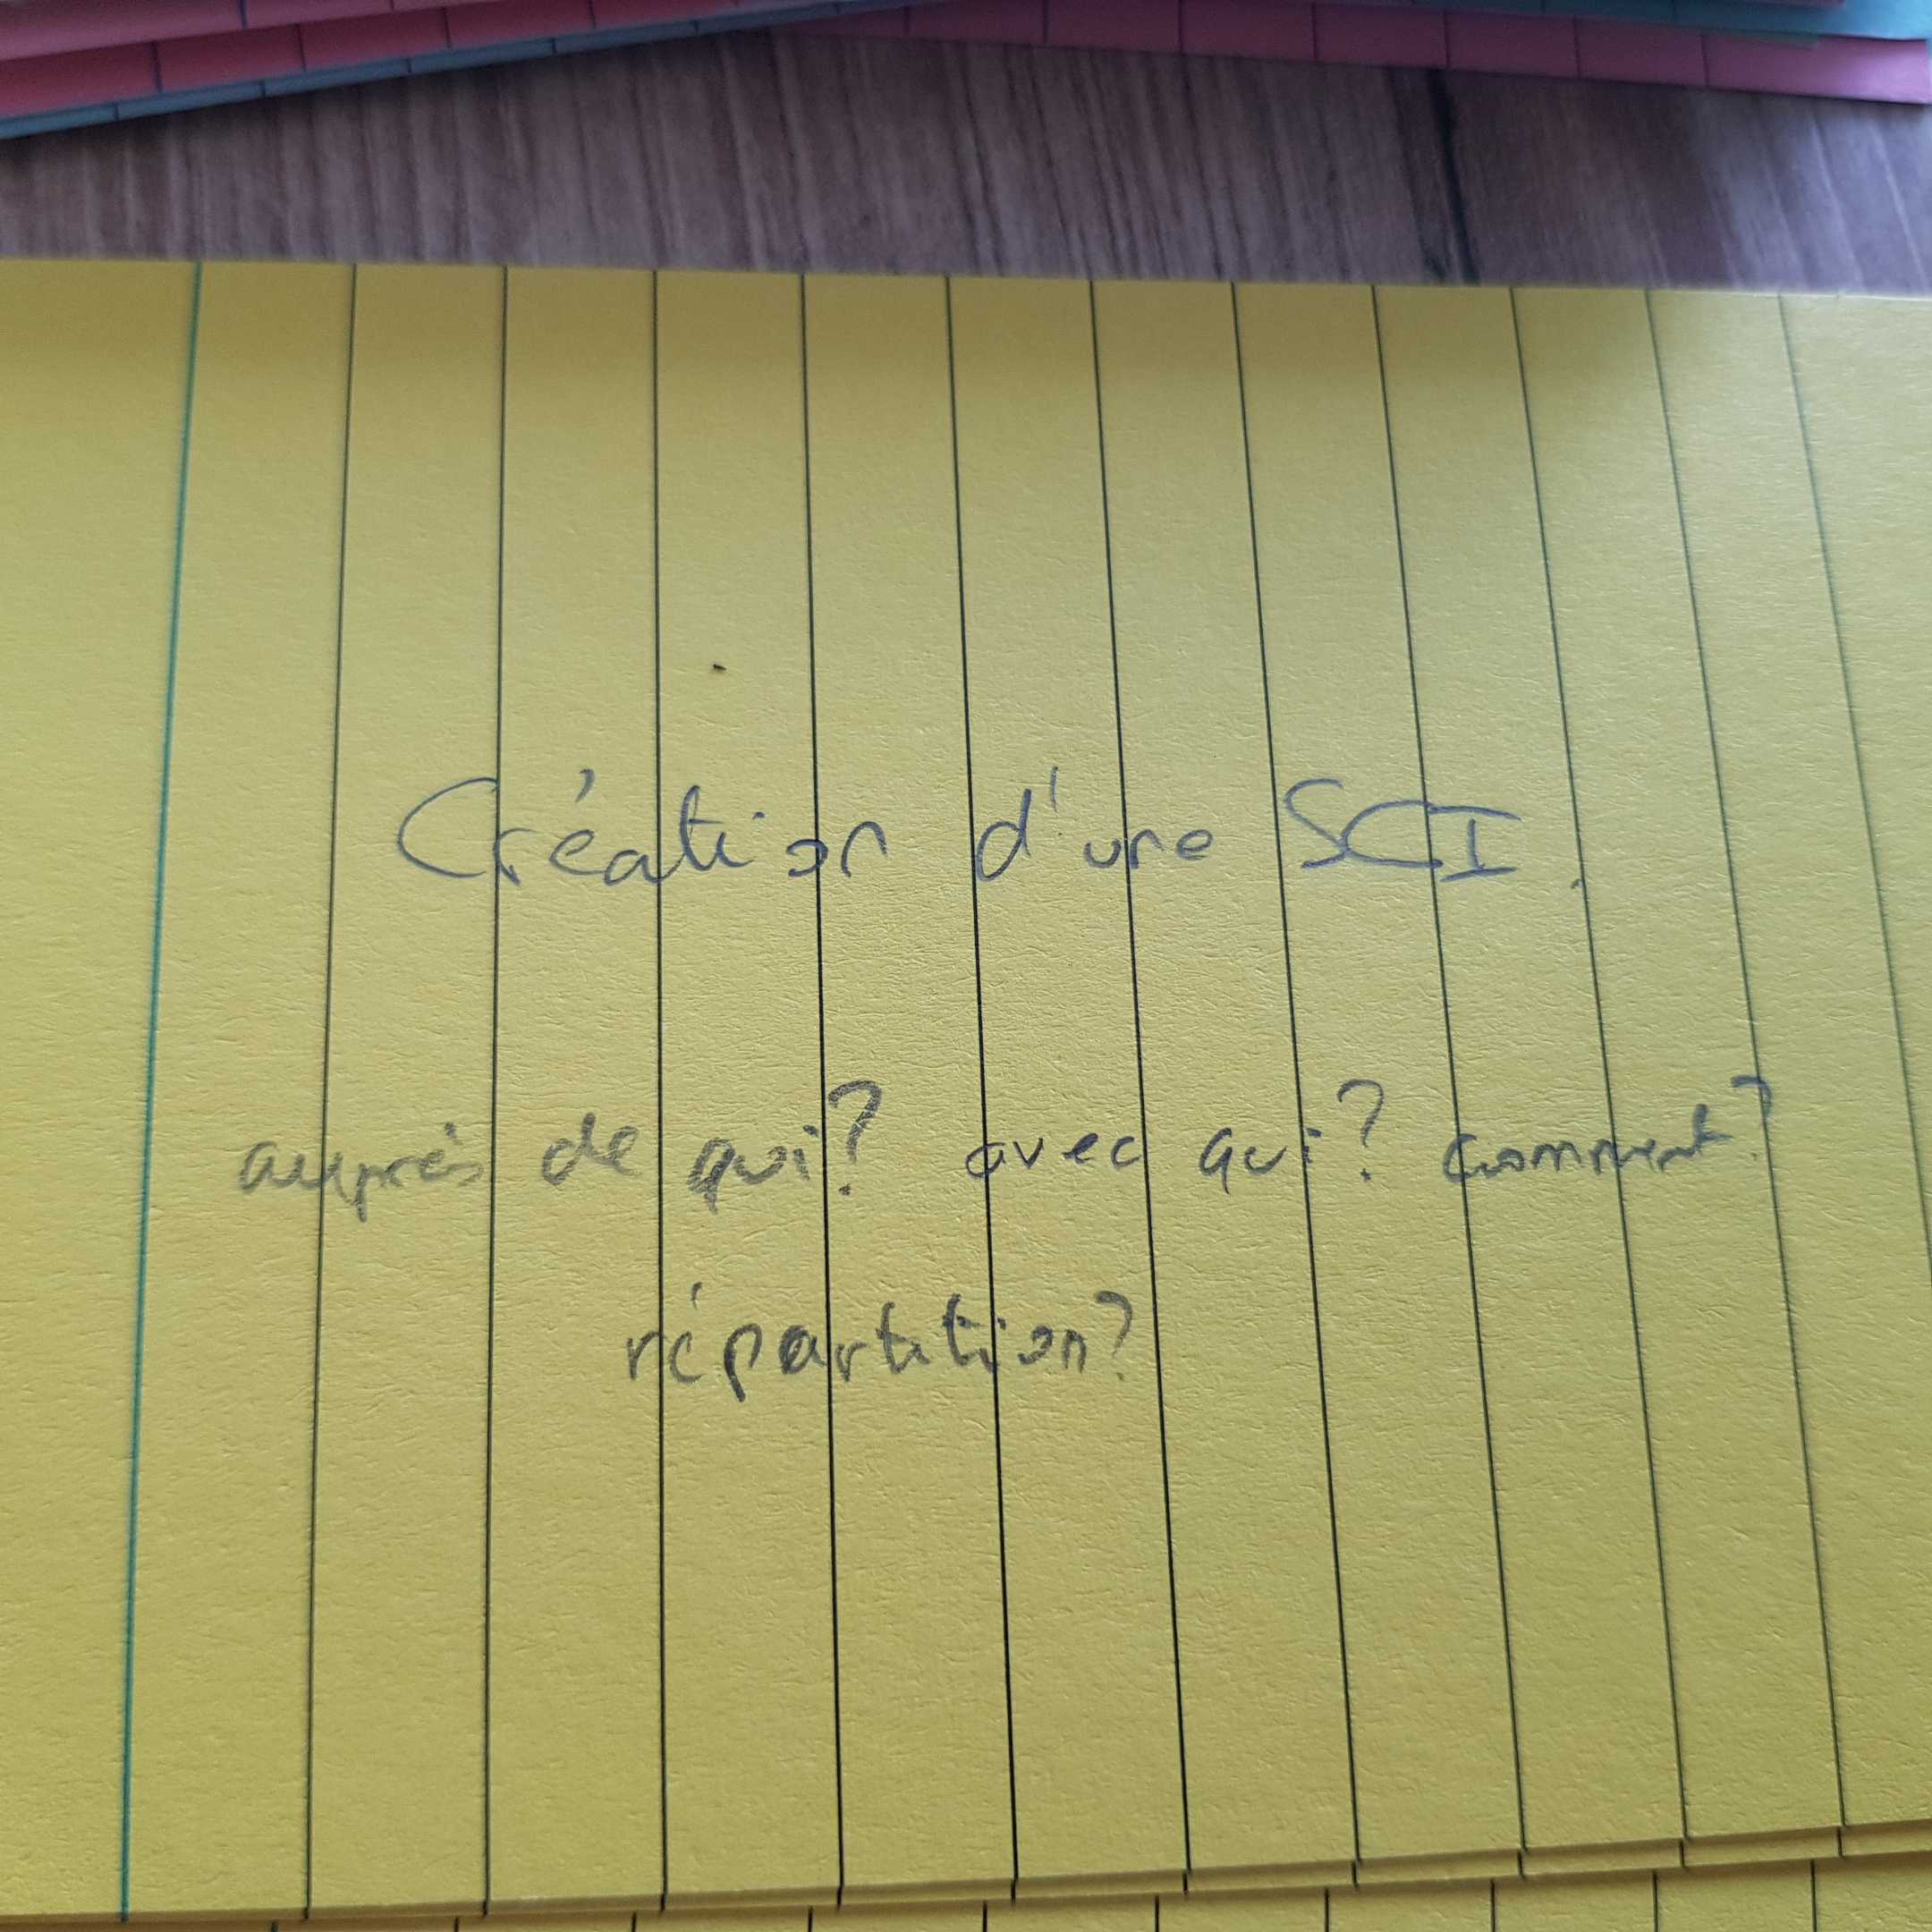 Création d'une SCI.
auprès de qui? avec qui? comment?
répartition?